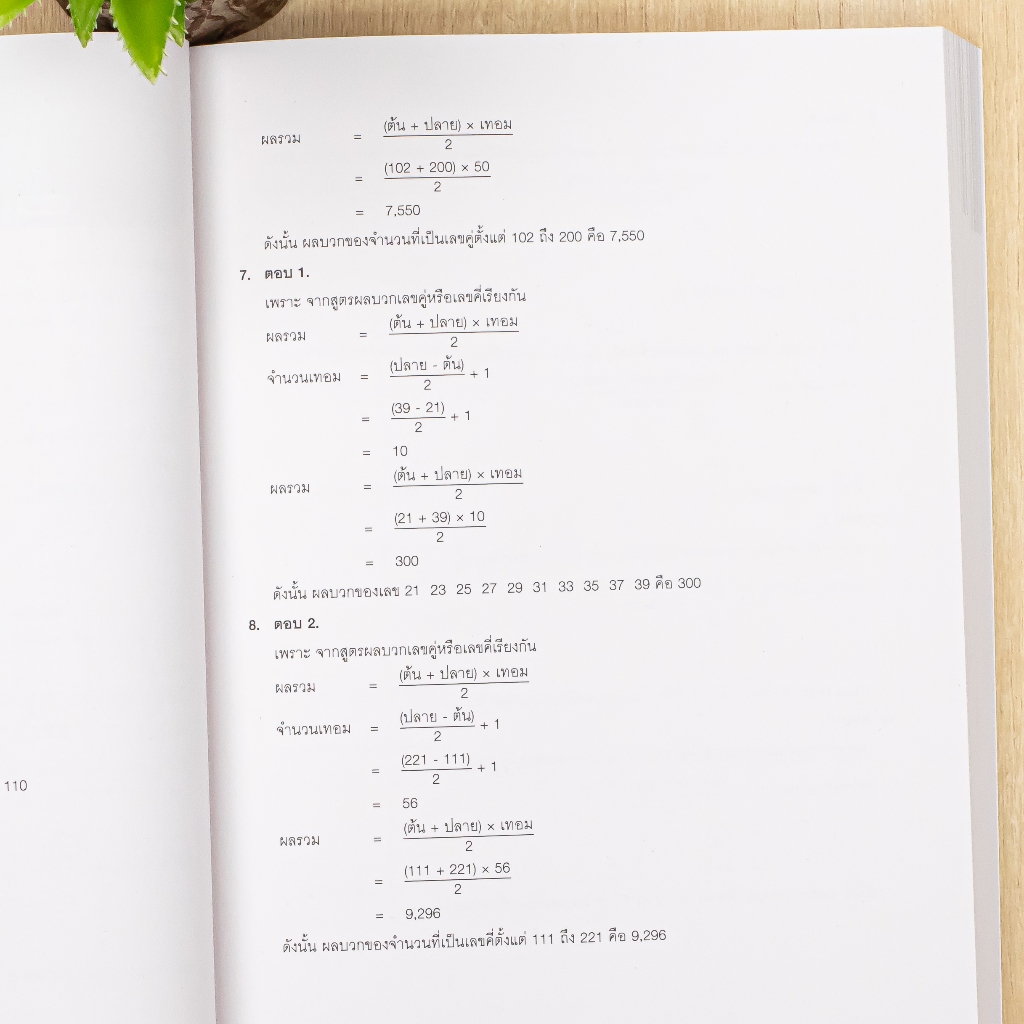 110
ผลรวม = (ต้น + ปลาย) × เทอม / 2
= (102 + 200) × 50 / 2
= 7,550
ดังนั้น ผลบวกของจำนวนที่เป็นเลขคู่ตั้งแต่ 102 ถึง 200 คือ 7,550
7. ตอบ 1.
เพราะ จากสูตรผลบวกเลขคู่หรือเลขคี่เรียงกัน
ผลรวม = (ต้น + ปลาย) × เทอม / 2
จำนวนเทอม = (ปลาย - ต้น) / 2 + 1
= (39 - 21) / 2 + 1
= 10
ผลรวม = (ต้น + ปลาย) × เทอม / 2
= (21 + 39) × 10 / 2
= 300
ดังนั้น ผลบวกของเลข 21 23 25 27 29 31 33 35 37 39 คือ 300
8. ตอบ 2.
เพราะ จากสูตรผลบวกเลขคู่หรือเลขคี่เรียงกัน
ผลรวม = (ต้น + ปลาย) × เทอม / 2
จำนวนเทอม = (ปลาย - ต้น) / 2 + 1
= (221 - 111) / 2 + 1
= 56
ผลรวม = (ต้น + ปลาย) × เทอม / 2
= (111 + 221) × 56 / 2
= 9,296
ดังนั้น ผลบวกของจำนวนที่เป็นเลขคี่ตั้งแต่ 111 ถึง 221 คือ 9,296